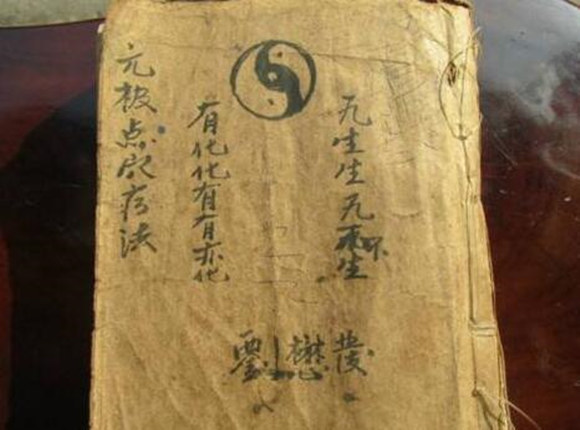 无生生无不生
有化化有有亦化
元极点疗法
劉懋